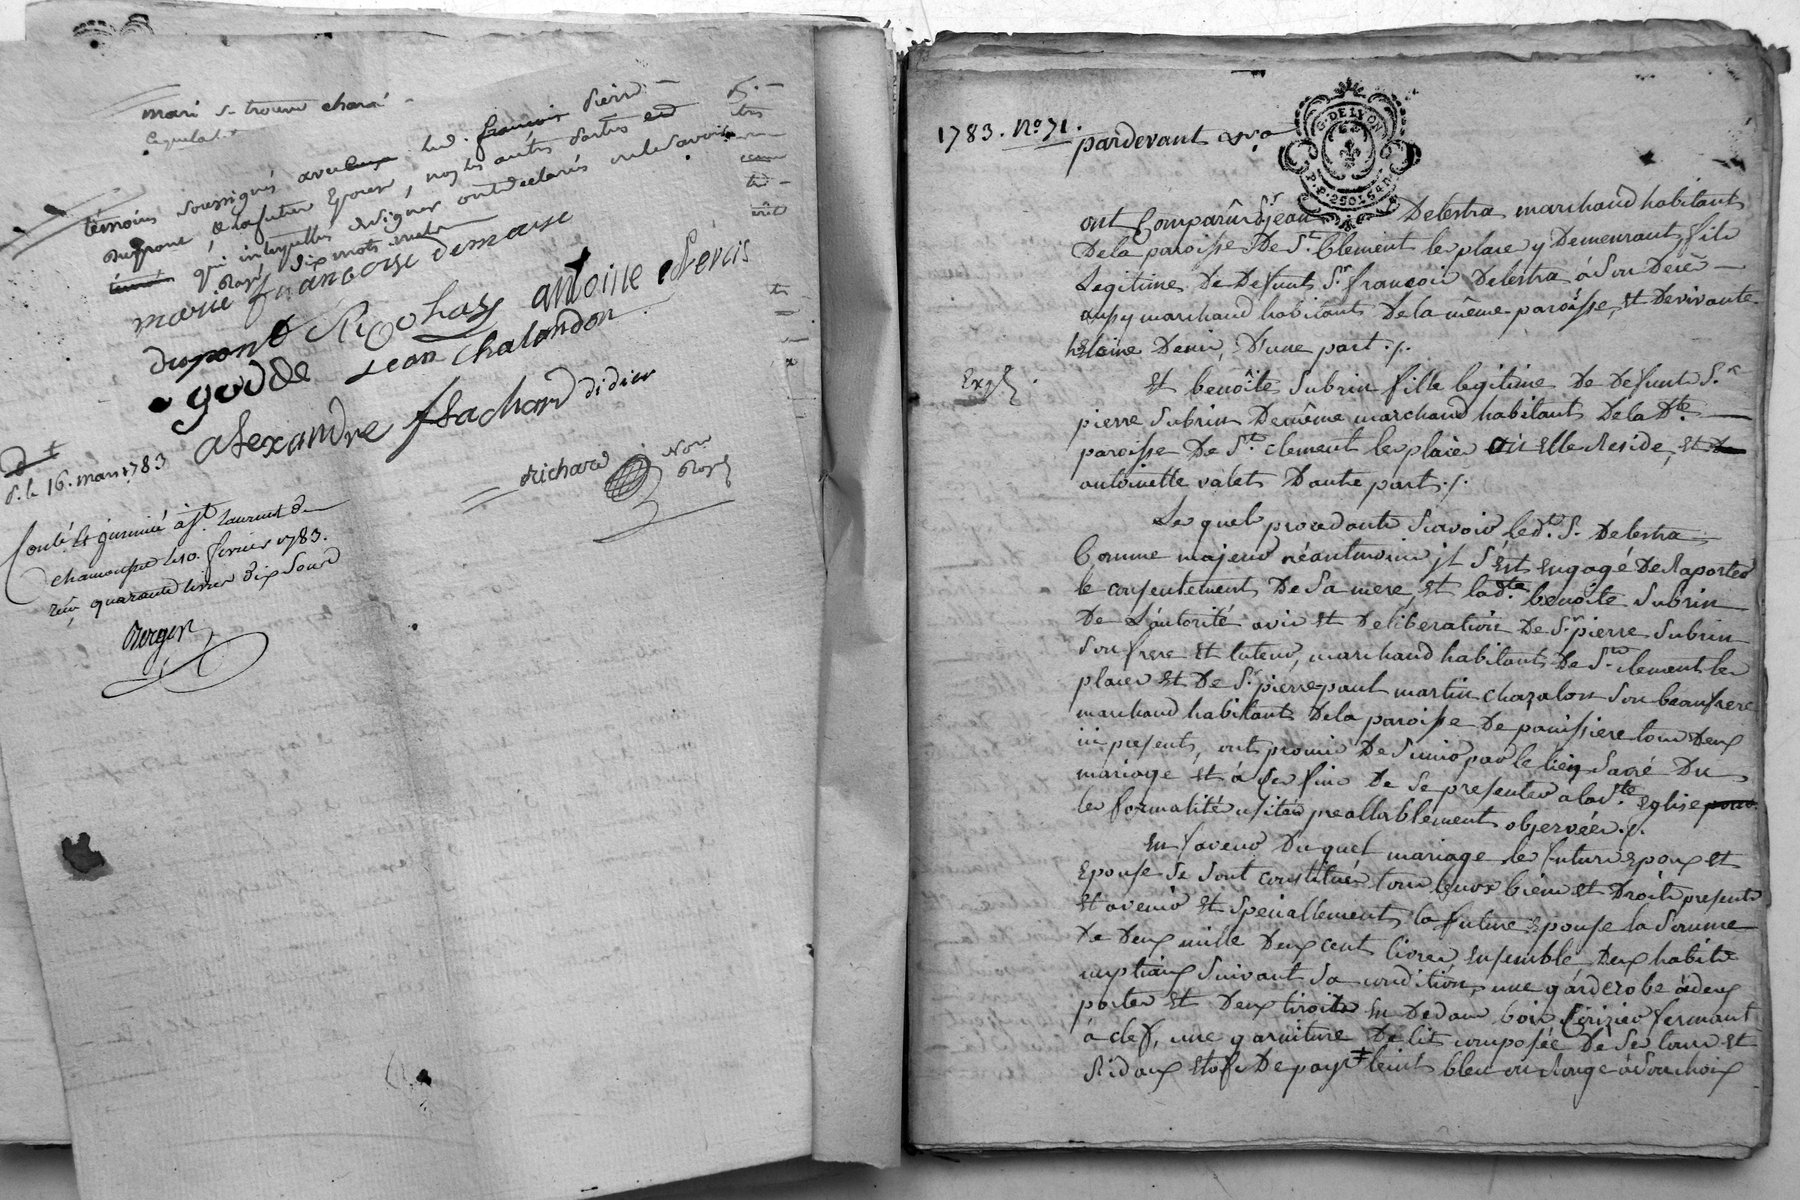 mari se trouve chargé
témoins soussignés avec led. françois pierre
Dupont, & la future Epouse, non les autres parties et
qui interpellés de signer ont declarés ne le savoir
Rayé six mots nuls
marie françoise demare
dupont Rigo antoine Nevcis
godde Jean Chalandon
alexandre flachard didier
Richard Nore Royal
d. le 16. mars 1783
Conlé et jnsinué à st. Laurent de
chamousset le 10. fevrier 1783.
reçu quarante livres dix sous
Bergen
1783. No. 71.
G. DE LYON
pardevant
ont Comparû Sr. jean Delestra marchand habitant
De la paroisse De St. Clement les places y Demeurant, fils
Legitime De Defunt Sr. françois Delestra à Son Decès
aussy marchand habitant De la même paroisse, et De vivante
helaine Denis, D'une part ./.
Expé
Et benoîte Subrin fille legitime De Defunt Sr.
pierre Subrin De même marchand habitant De la Dte.
paroisse De St. Clement les places où elle Reside, et
antoinette valet D'autre part ./.
Lesquels procedants Scavoir led. S. Delestra
Comme majeur néantmoins il s'est engagé De Raporter
le consentement De Sa mere, et lad.te benoite Subrin
De L'autorité avis et Deliberation De Sr. pierre Subrin
Son frere et tuteur, marchand habitant De St. Clement les
places et De Sr. pierre paul martin chazalon Son beaufrere
marchand habitant De la paroisse De panissiere tous Deux
ici presents, ont promis De S'unir par le lien Sacré Du
mariage et à Ses fins De Se presenter a lad.te Eglise pour
les formalités usitées preallablement observées ./.
En faveur Duquel mariage les futurs epoux et
Epouse Se Sont constitués tous leurs biens et Droits presents
et avenir et Speciallement la future Epouse la Somme
De Deux mille Deux cent livres ensemble Deux habits
nuptiaux Suivant Sa condition, une garderobe à deux
portes et Deux tiroirs en Dedans bois Cerizier fermant
à clef, une garniture De lit composée De Ses tours et
Ridaux etofe De pays teint bleu ou Rouge à Son choix